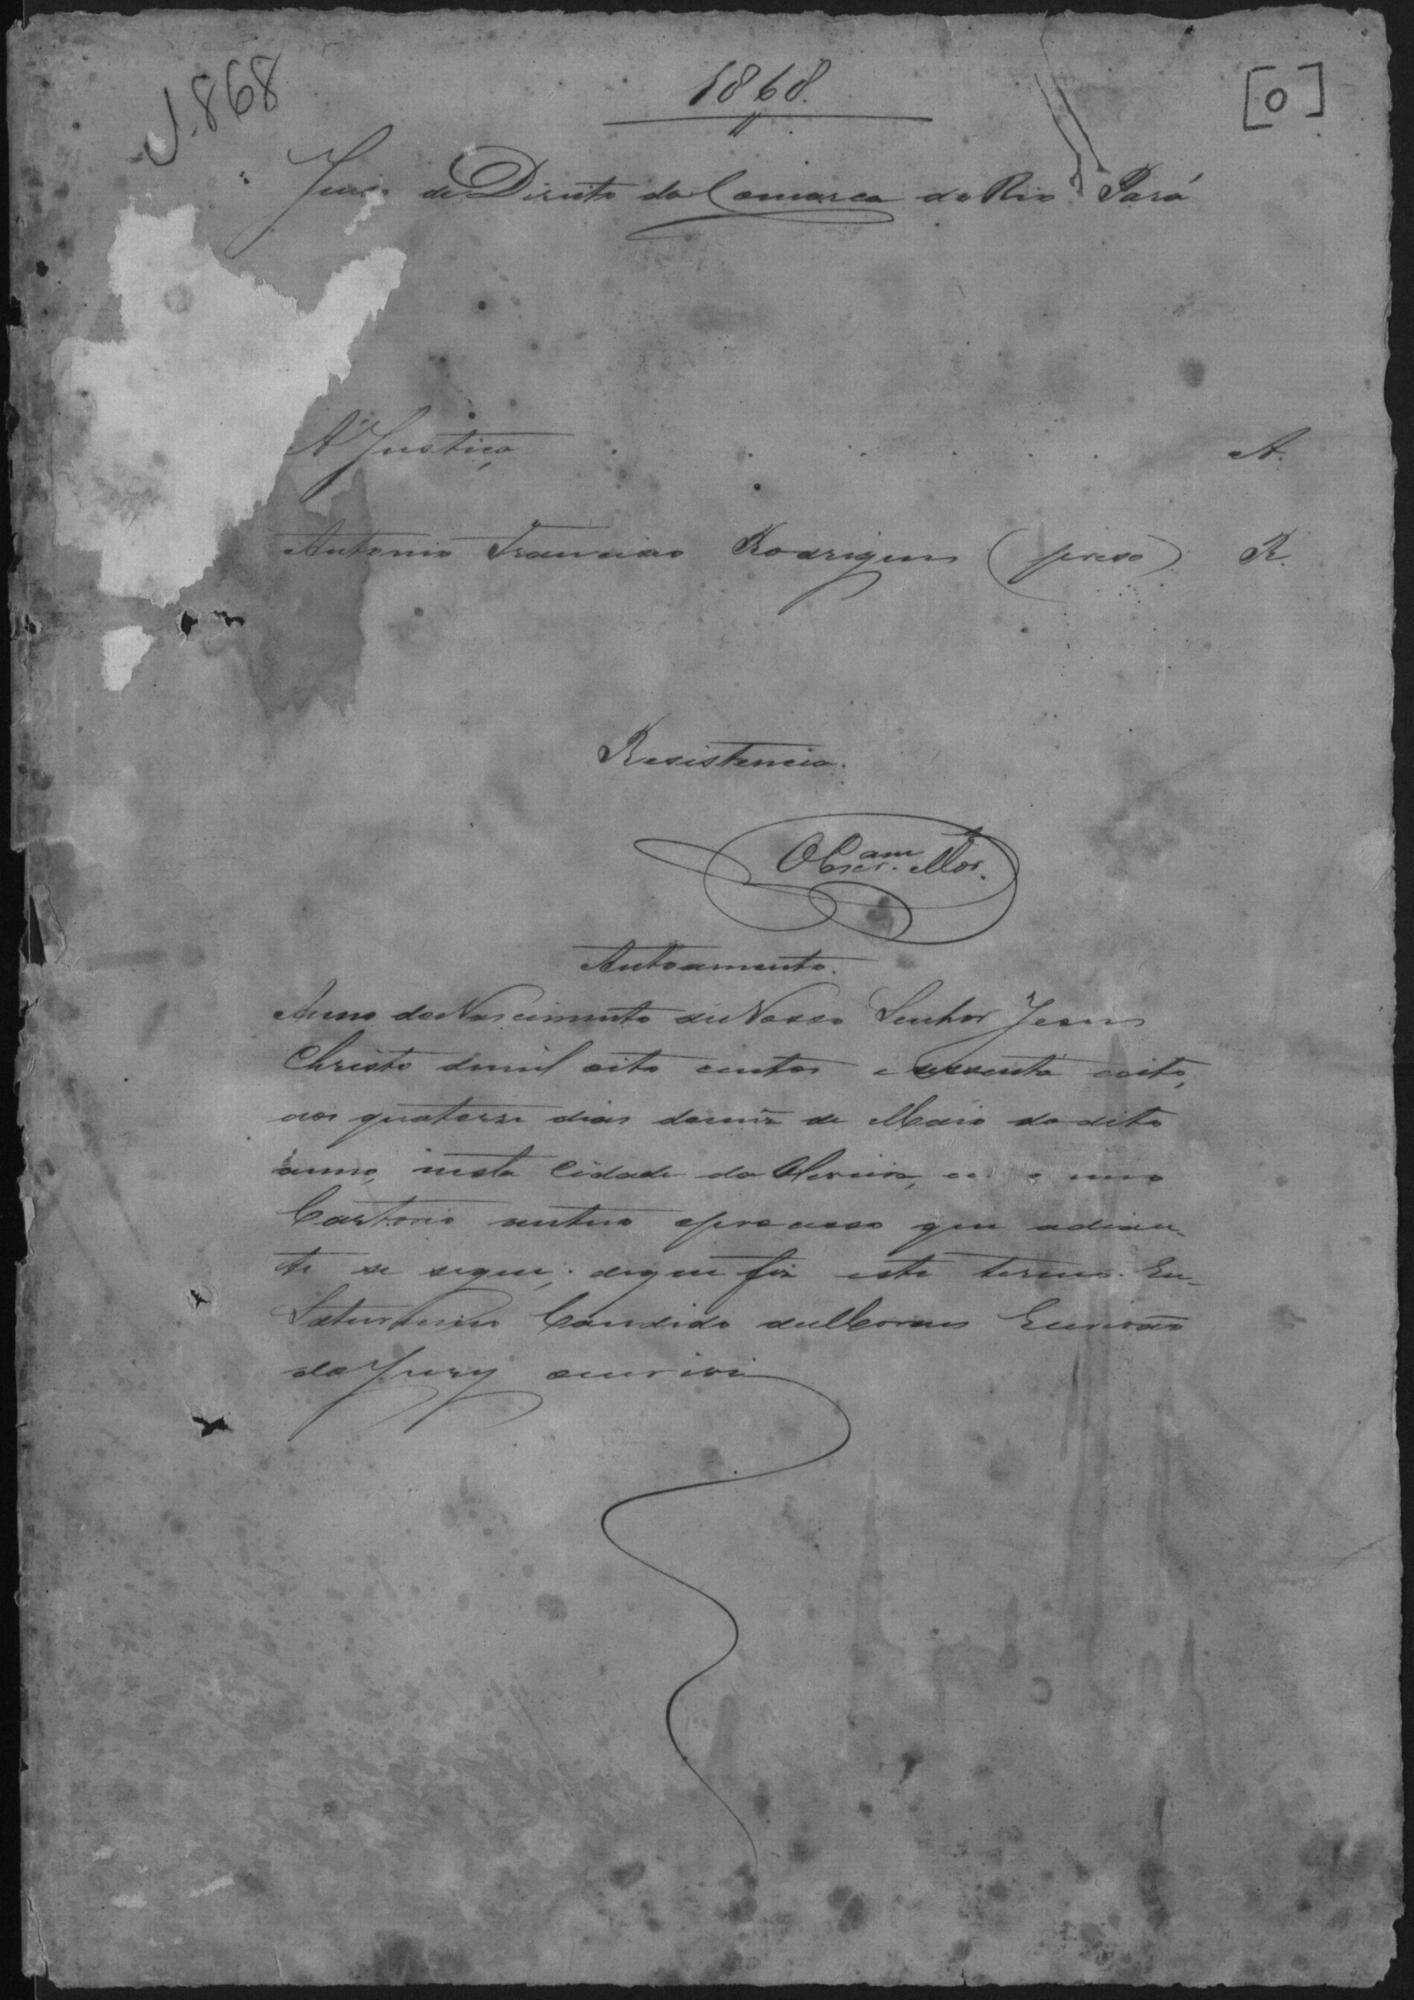 1868
1868.
[0]
Juizo de Direito da Comarca do Rio Pará
A Justiça A.
Antonio Francisco Rodrigues (preso) R.
Resistencia.
O Escr.am Mor.
Autoamento.
Anno do Nascimento de Nosso Senhor Jesus
Christo de mil oito centos e sessenta e oito,
aos quatorze dias do mez de Maio do dito
anno, nesta Cidade da Oliveira, em meo
Cartorio autuo o processo que adian-
te se segue; de que fiz este termo. Eu
Saturnino Candido de Moraes Escrivão
do Jury o escrivi